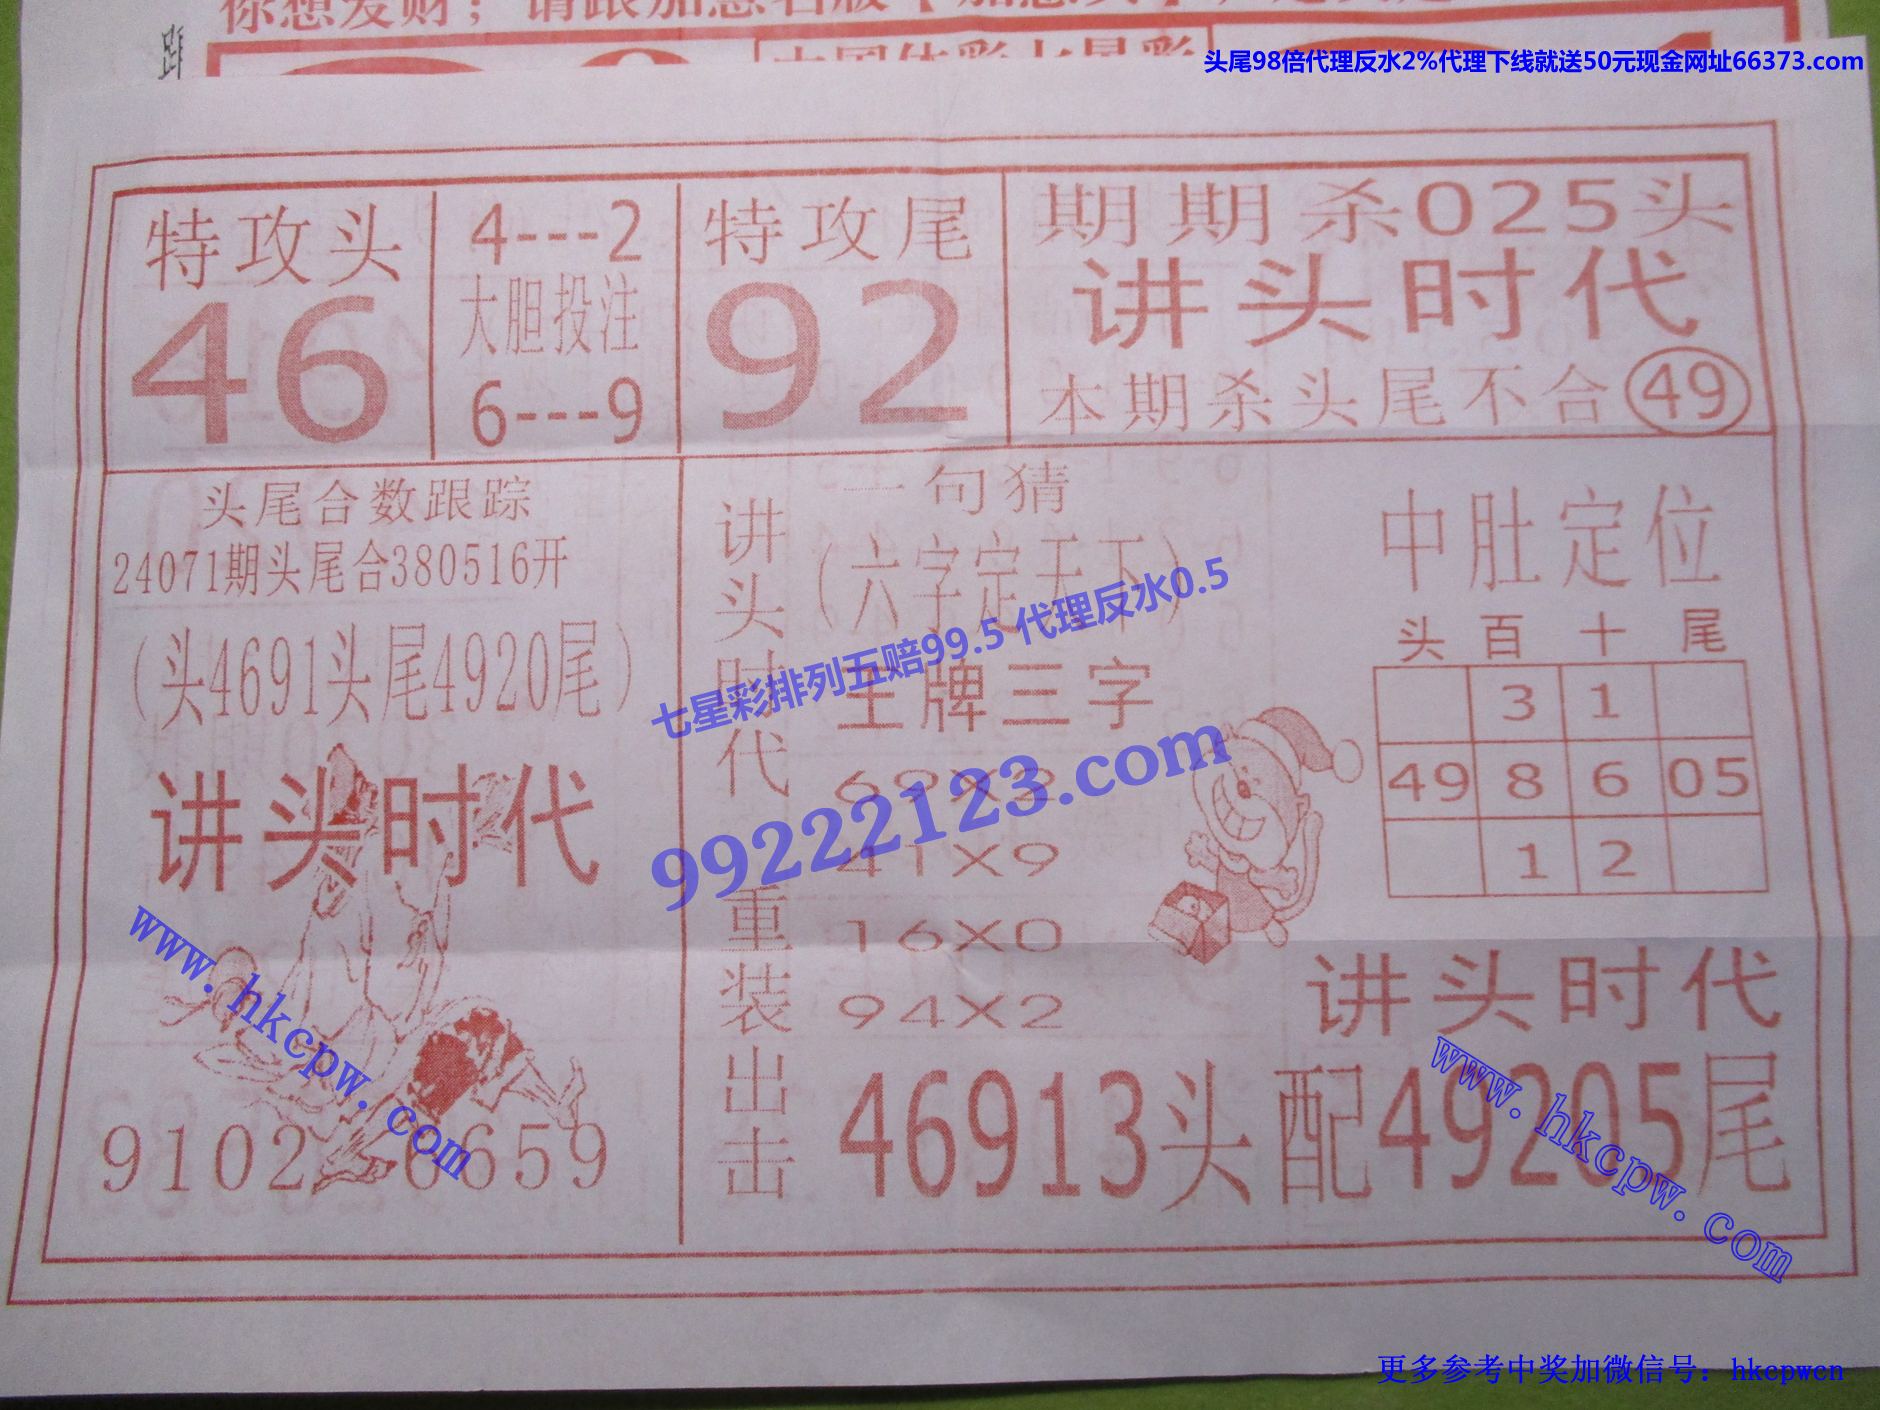 你想发财；请跟加惠名版【加惠头】
跟
中国体彩七星彩
头尾98倍代理反水2%代理下线就送50元现金网址66373.com
特攻头
46
4---2
大胆投注
6---9
特攻尾
92
期期杀025头
讲头时代
本期杀头尾不合49
头尾合数跟踪
24071期头尾合380516开
(头4691头尾4920尾)
讲头时代
9102
6659
讲头时代
重装出击
一句猜
(六字定天下)
王牌三字
69X2
41X9
16X0
94X2
中肚定位
头 百 十 尾
3 1
49 8 6 05
1 2
讲头时代
46913头配49205尾
七星彩排列五赔99.5 代理反水0.5
99222123.com
www.hkcpw.com
www.hkcpw.com
更多参考中奖加微信号：hkcpwcn